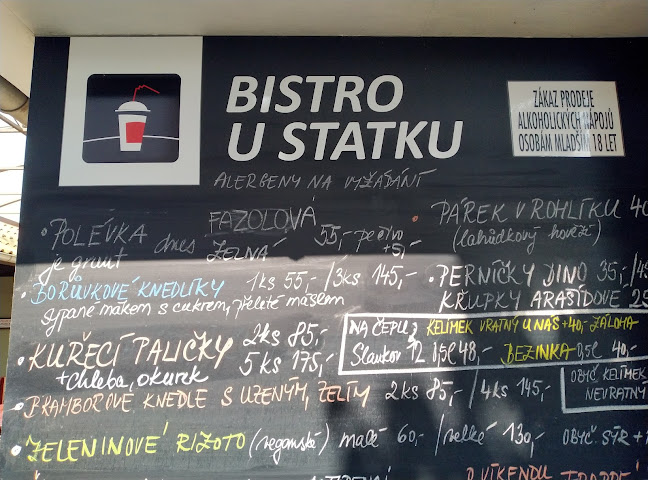 BISTRO
U STATKU
ZÁKAZ PRODEJE
ALKOHOLICKÝCH NÁPOJŮ
OSOBÁM MLADŠÍM 18 LET
ALERGENY NA VYŽÁDÁNÍ
• POLÉVKA dnes FAZOLOVÁ
ZELNÁ 55,- pečivo +5,-
je grunt
• BORŮVKOVÉ KNEDLÍKY 1ks 55,- /3ks 145,-
sypané mákem s cukrem, přelité máslem
• KUŘECÍ PALIČKY 2ks 85,-
5ks 175,-
+chleba, okurek
• BRAMBOROVÉ KNEDLE S UZENÝM, ZELÍM 2ks 85,- /4ks 145,-
• ZELENINOVÉ RIZOTO (veganské) malé 60,- /velké 130,-
• PÁREK V ROHLÍKU 40
(lahůdkový hovězí)
• PERNÍČKY DINO 35,-
KŘUPKY ARAŠÍDOVÉ
NA ČEPU: KELÍMEK VRATNÝ U NÁS +40,- ZÁLOHA
Slavkov 12 0,5l 48,- BEZINKA 0,5l 40,-
OBYČ. KELÍMEK
NEVRATNÝ
OBYČ. SÝR +
O VÍKENDU